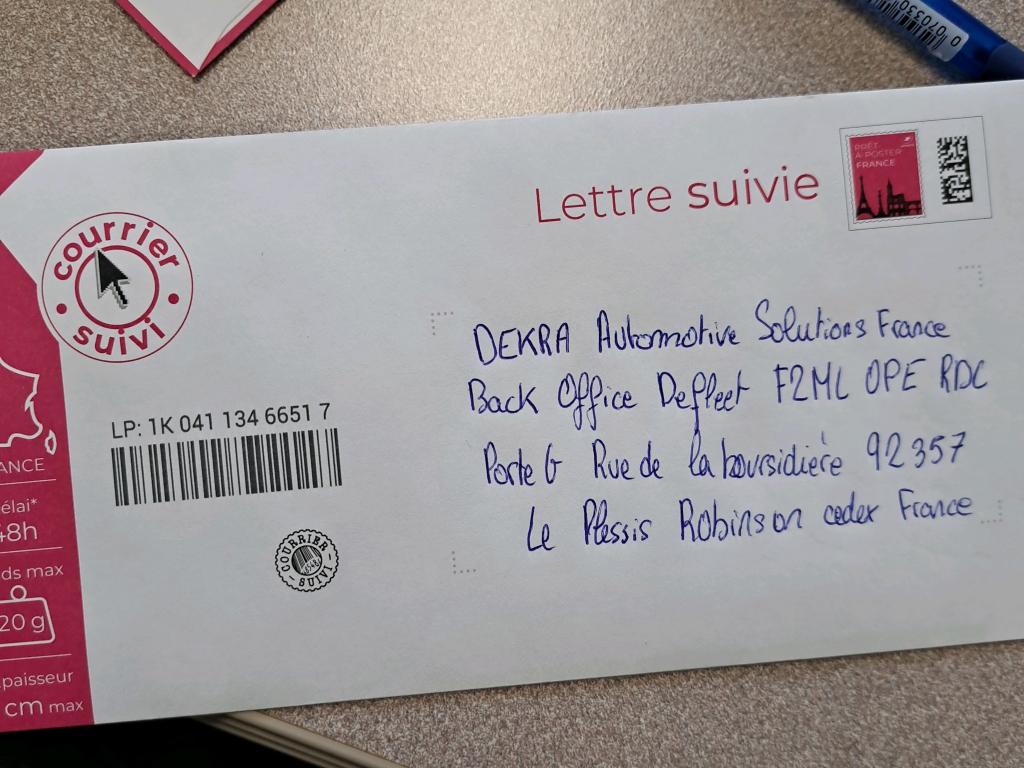 0 070330
PRÊT
À POSTER
FRANCE
Lettre suivie
courrier
suivi
DEKRA Automotive Solutions France
Back Office Defleet F2ML OPE RDC
Porte G Rue de la boursidière 92357
Le Plessis Robinson cedex France
LP: 1K 041 134 6651 7
COURRIER
SUIVI
ANCE
élai*
48h
ds max
20 g
paisseur
cm max